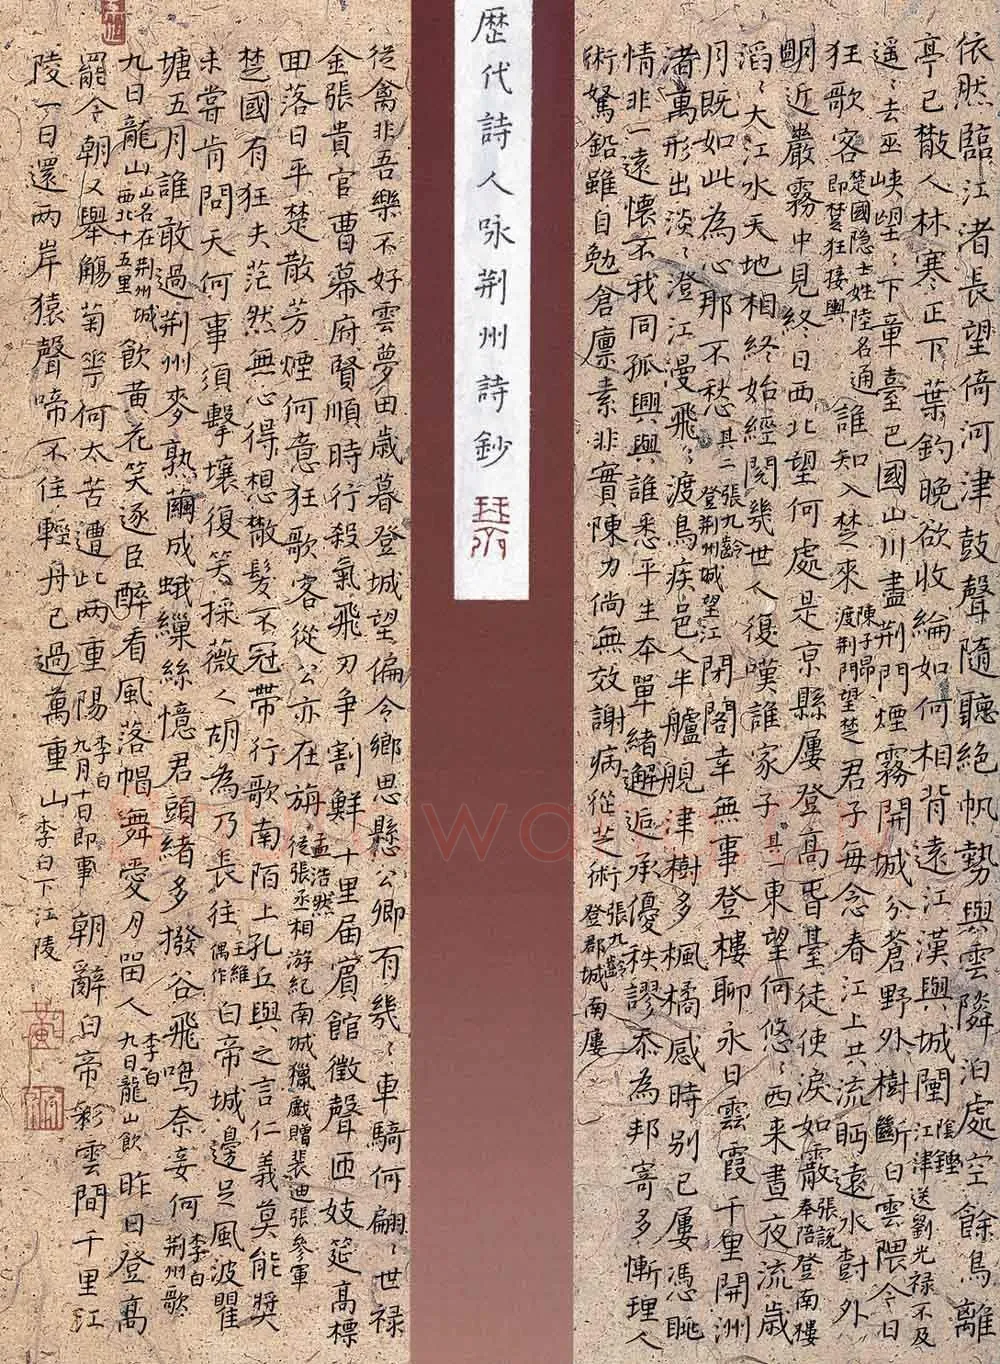 依然臨江渚長望倚河津鼓聲隨聽絕帆勢與雲隣泊處空餘鳥離
亭已散人林寒正下葉釣晚欲收綸如何相背遠江漢與城闉陰鏗江津送劉光禄不及
遥〻去巫峽望〻下章臺巴國山川盡荆門煙霧開城分蒼野外樹斷白雲隈今日
狂歌客楚國隐士姓陸名通即楚狂接輿誰知入楚来陳子昂渡荆門望楚君子每念春江上共流眄遠水對外
明近巖霧中見終日西北望何處是京縣屡登高昏臺徒使淚如霰張説奉陪登南樓
滔〻大江水天地相終始經閱幾世人復嘆誰家子其一東望何悠〻西来晝夜流歲
月既如此為心那不愁其二張九齡登荆州城望江閉閣幸無事登樓聊永日雲霞千里開洲
渚萬形出淡〻澄江漫飛〻渡鳥疾邑人半艫舰津樹多楓橘感時别已屡憑眺
情非一遠懷不我同孤興與誰悉平生本單緒邂逅承優秩謬忝為邦寄多慚理人
術駑鉛雖自勉倉廪素非實陳力倘無效謝病從芝術張九齡登郡城南屡
歷代詩人咏荆州詩鈔
從禽非吾樂不好雲夢田歲暮登城望偏令鄉思懸公卿有幾〻車騎何翩〻世禄
金張貴官曹幕府賢順時行殺氣飛刃争割鮮十里届賓館徵聲匝妓筵高標
回落日平楚散芳煙何意狂歌客從公亦在旃孟浩然從張丞相游紀南城獵戲贈裴迪張參軍
楚國有狂夫茫然無心得想散髮不冠帶行歌南陌上孔丘與之言仁義莫能獎
未嘗肯問天何事須擊壤復笑採薇人胡為乃長往王維偶作白帝城邊足風波瞿
塘五月誰敢過荆州麥熟繭成蛾繅絲憶君頭緒多撥谷飛鳴奈妾何李白荆州歌
九日龍山山名在荆州城西北十五里飲黄花笑逐臣醉看風落帽舞愛月留人李白九日龍山飲昨日登高
罷今朝又舉觴菊花何太苦遭此两重陽李白九月十日即事朝辭白帝彩雲間千里江
陵一日還两岸猿聲啼不住輕舟已過萬重山李白下江陵